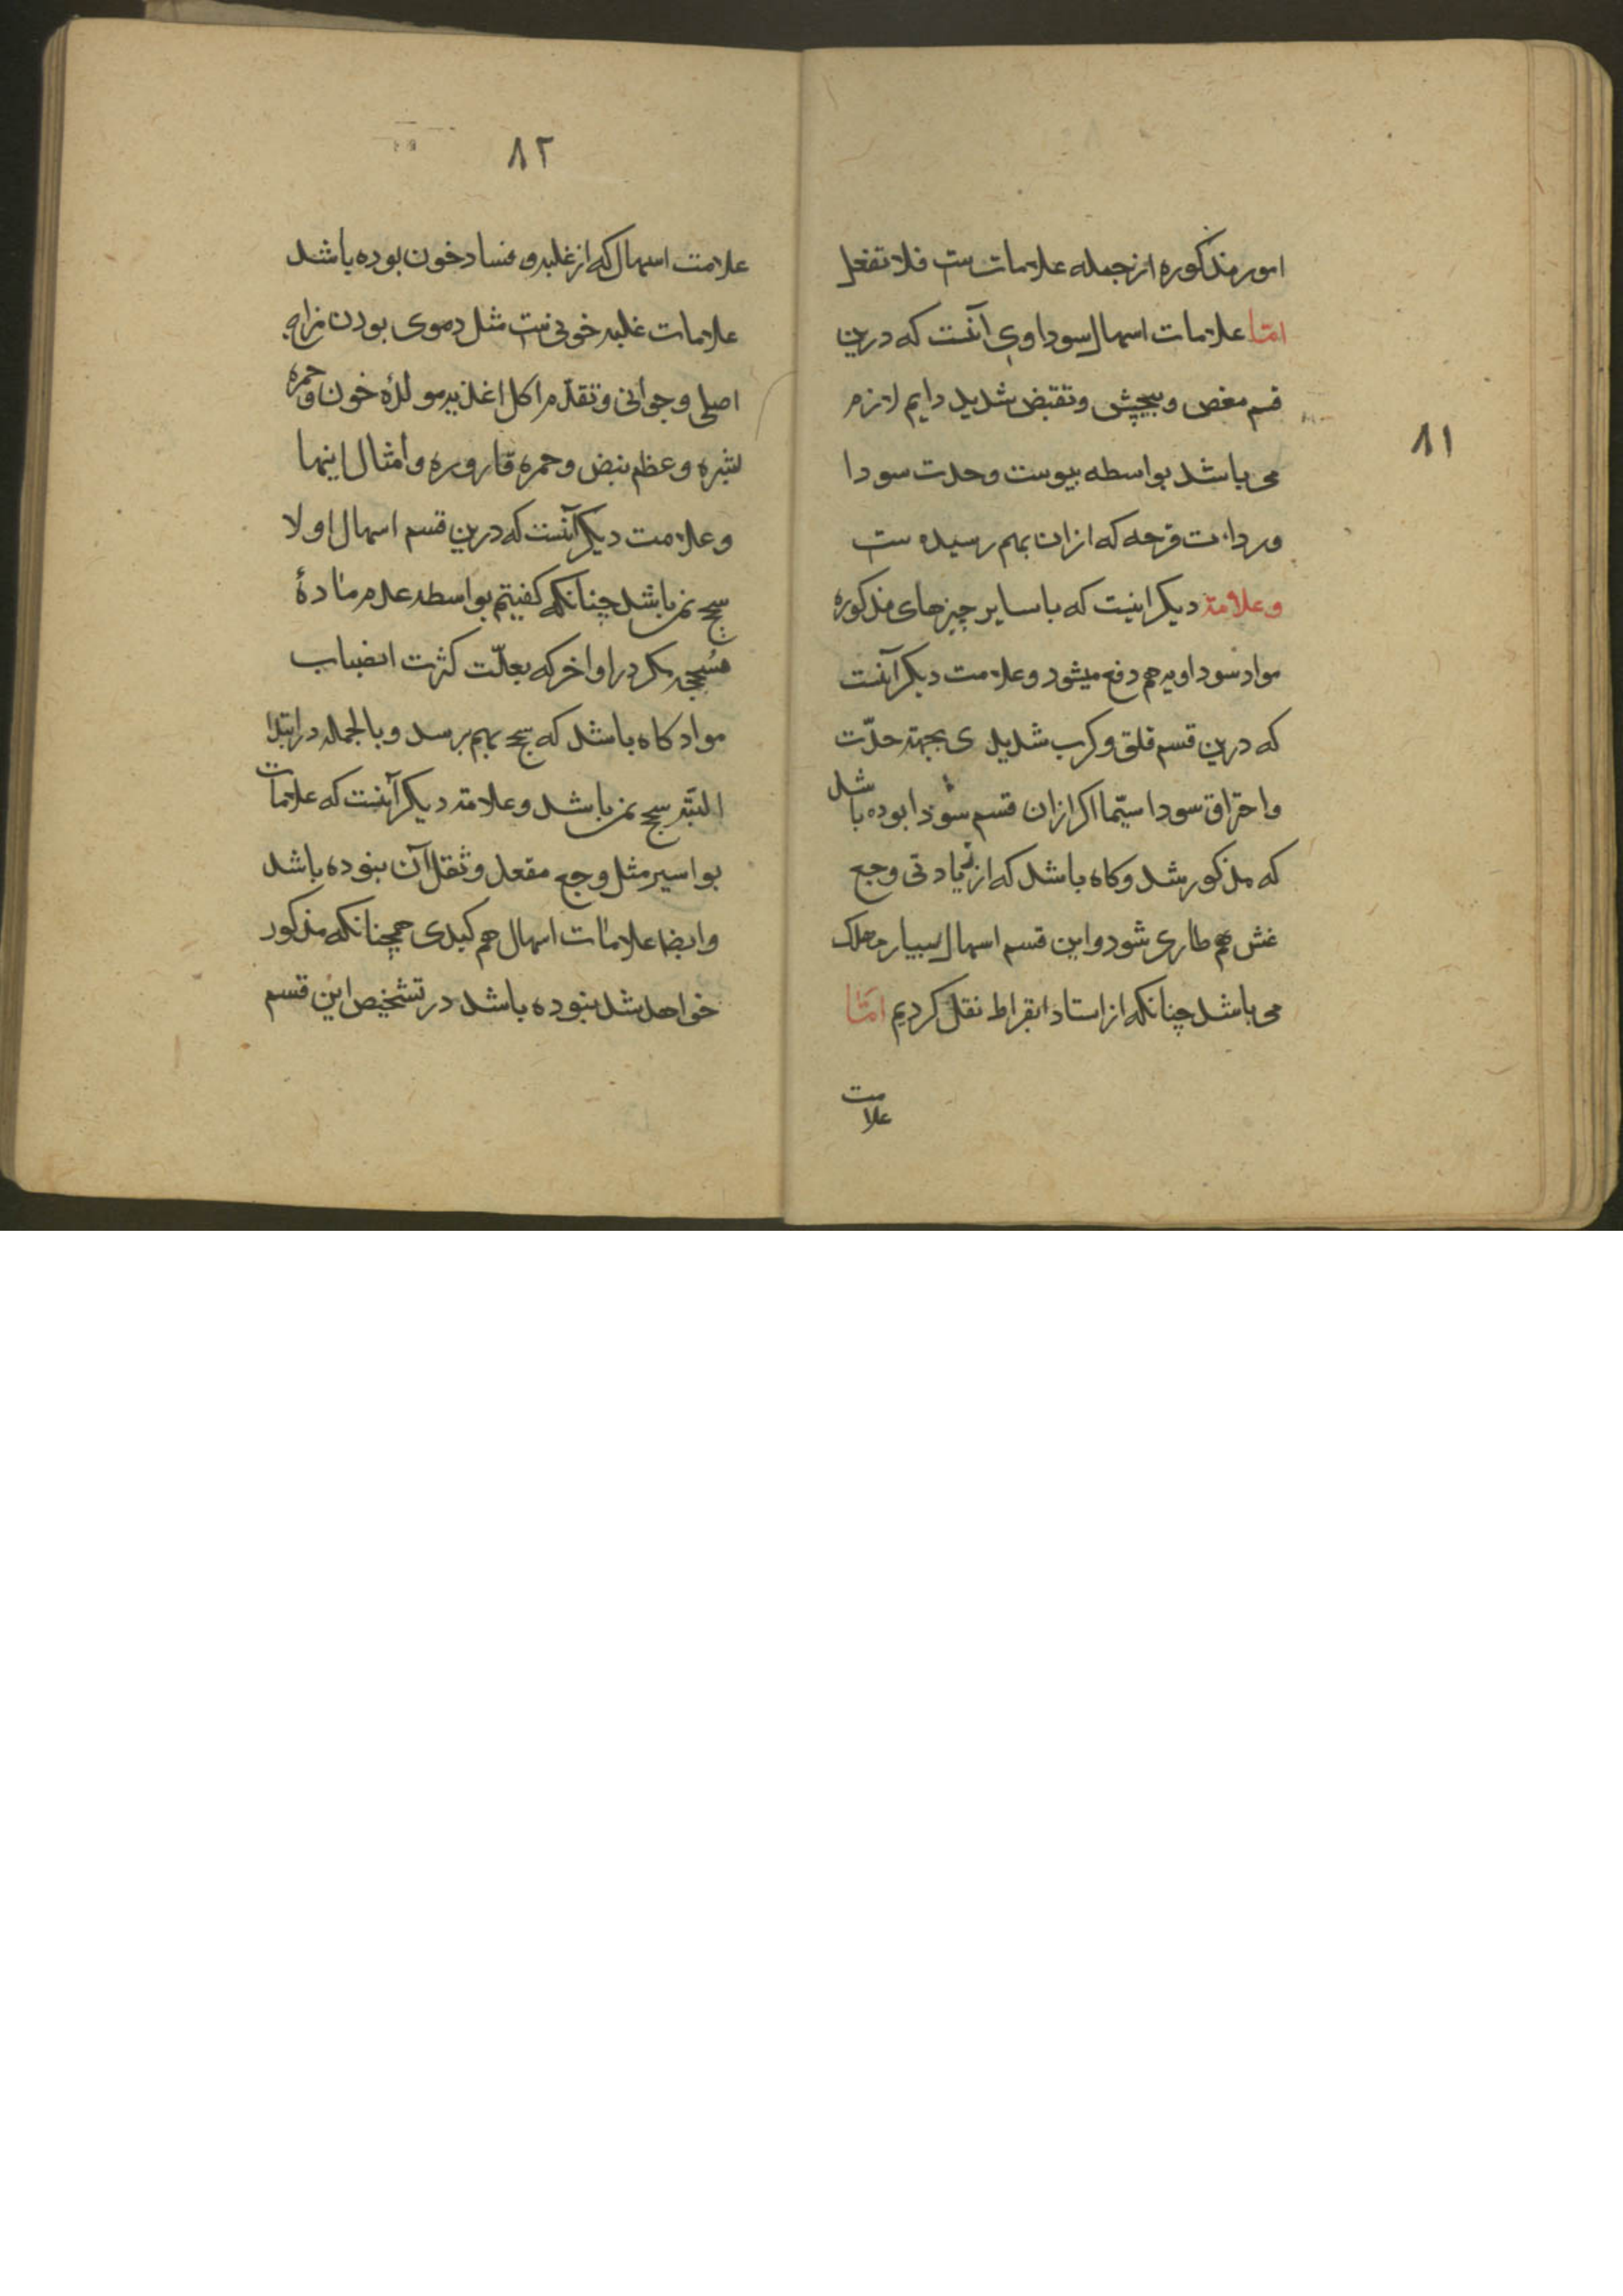 ٨١
امور مذکوره از جمله علامات ست فلا تغفل
امّا علامات اسهال سوداوی آنست که درین
قسم مغص و پیچش و تقبض شدید دایم لازم
می باشد بواسطه یبوست وحدت سودا
ورداءت قرحه که ازان بهم رسیده ست
وعلامة دیکر اینست که با سایر چیزهای مذکوره
مواد سوداویه هم دفع میشود وعلامت دیکر آنست
که درین قسم قلق وکرب شدیدی بجهته حدّت
واحتراق سودا سیّما اکر ازان قسم سودا بوده باشد
که مذکور شد وکاه باشد که از زیادتی وجع
غش هم طاری شود واین قسم اسهال بسیار مهلک
می باشد چنانکه از استاد ابقراط نقل کردیم امّا
علامت
٨٢
علامت اسهال که از غلبه و فساد خون بوده باشد
علامات غلبه خونی ست مثل دموی بودن مزاج
اصلی و جوانی وتقدّم اکل اغذیه مولدهٔ خون وحمرة
بشره وعظم نبض وحمره قاروره وامثال اینها
وعلامت دیکر آنست که درین قسم اسهال اولا
سحج نمی باشد چنانکه کفتیم بواسطه عدم مادهٔ
مسحجه مکر در اواخر که بعلّت کثرت انصباب
مواد کاه باشد که سحج بهم برسد وبالجمله در ابتدا
البتّه سحج نمی باشد وعلامة دیکر آنست که علامات
بواسیر مثل وجع مقعد وثقل آن نبوده باشد
وایضا علامات اسهال هم کبدی همچنانکه مذکور
خواهد شد نبوده باشد در تشخیص این قسم